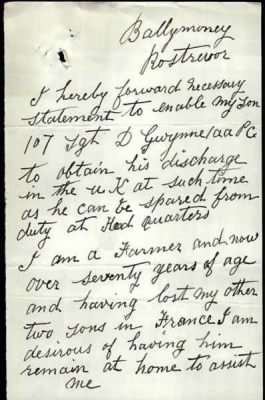 Ballymoney
Rostrevor
I hereby forward necessary
statement to enable my son
107 Sgt D Gwynne 1 aa P C
to obtain his discharge
in the U K at such time
as he can be spared from
duty at Hed quarters
I am a Farmer and now
over seventy years of age
and having lost my other
two sons in France I am
desirous of having him
remain at home to assist
me